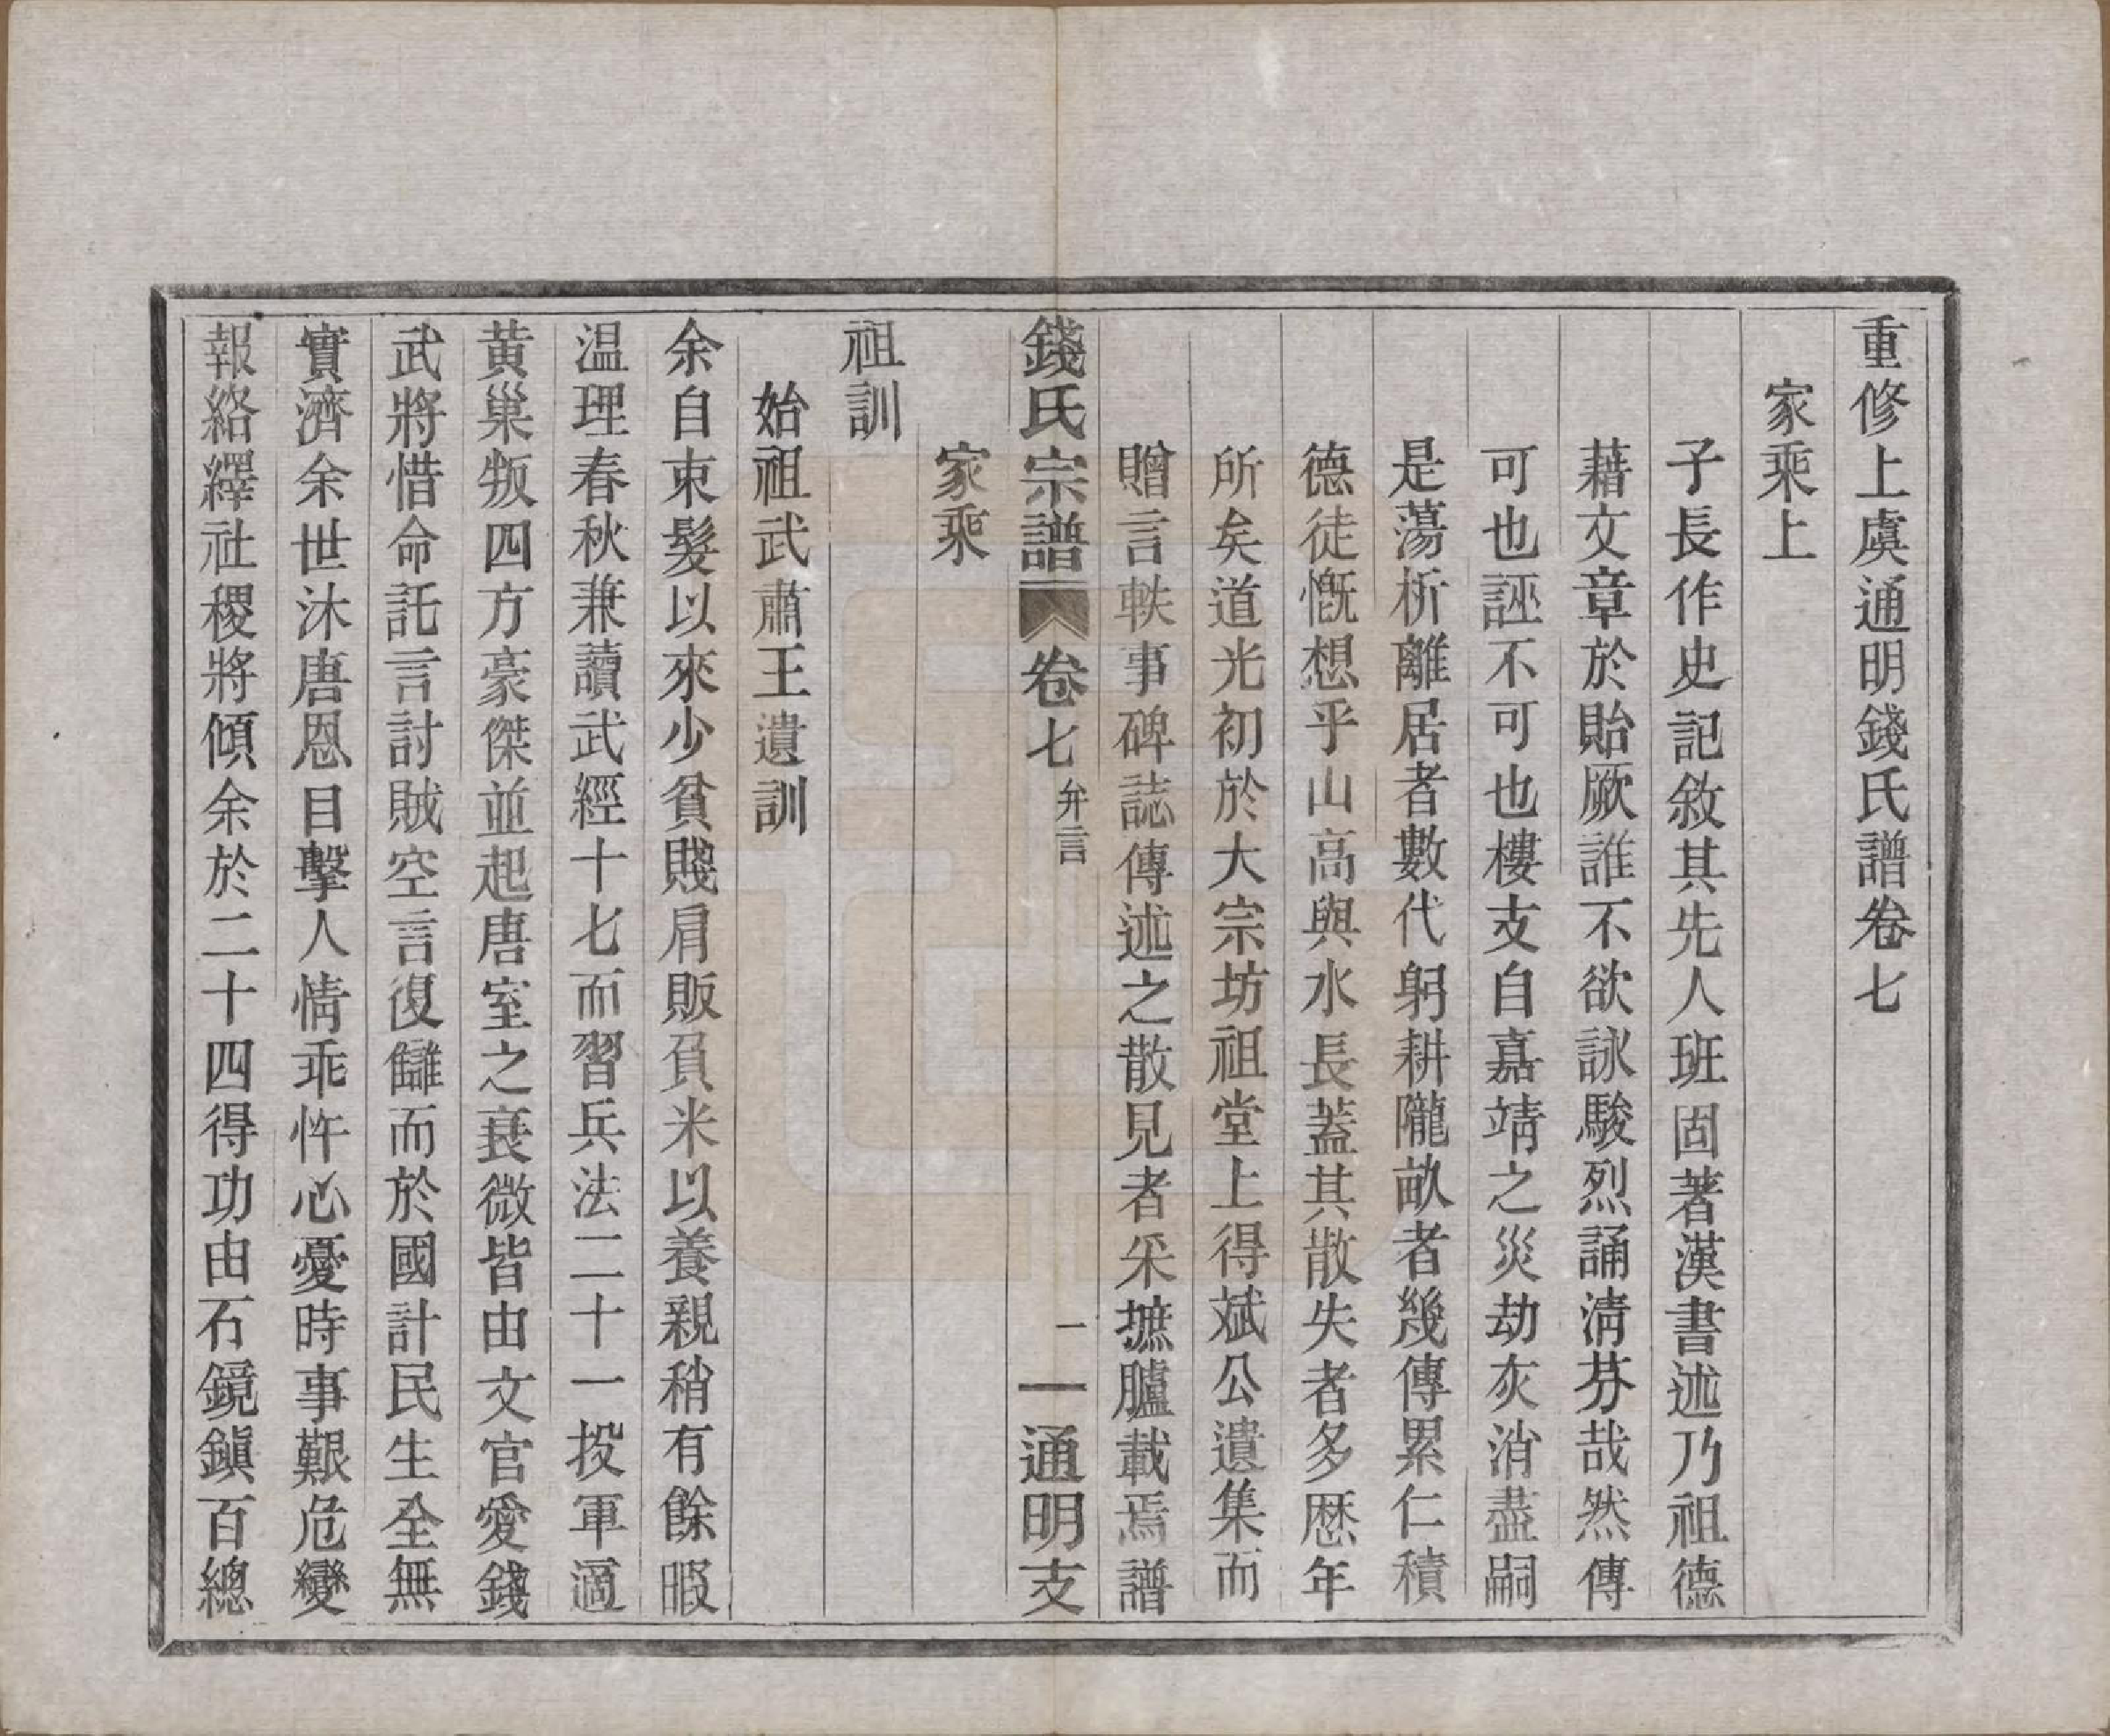 重修上虞通明錢氏譜卷七
家乘上
子長作史記敘其先人班固著漢書述乃祖德
藉文章於貽厥誰不欲詠駿烈誦淸芬哉然傳
可也誣不可也樓支自嘉靖之災劫灰消盡嗣
是蕩析離居者數代躬耕隴畝者幾傳累仁積
德徒慨想乎山高與水長蓋其散失者多歴年
所矣道光初於大宗坊祖堂上得斌公遺集而
贈言軼事碑誌傳述之散見者采摭臚載焉譜
錢氏宗譜 卷七 弁言 一 通明支
家乘
祖訓
始祖武肅王遺訓
余自束髮以來少貧賤肩販負米以養親稍有餘暇
温理春秋兼讀武經十七而習兵法二十一投軍適
黃巢叛四方豪傑並起唐室之衰微皆由文官愛錢
武將惜命託言討賊空言復讎而於國計民生全無
實濟余世沐唐恩目擊人情乖忤心憂時事艱危變
報絡繹社稷將傾余於二十四得功由石鏡鎭百總